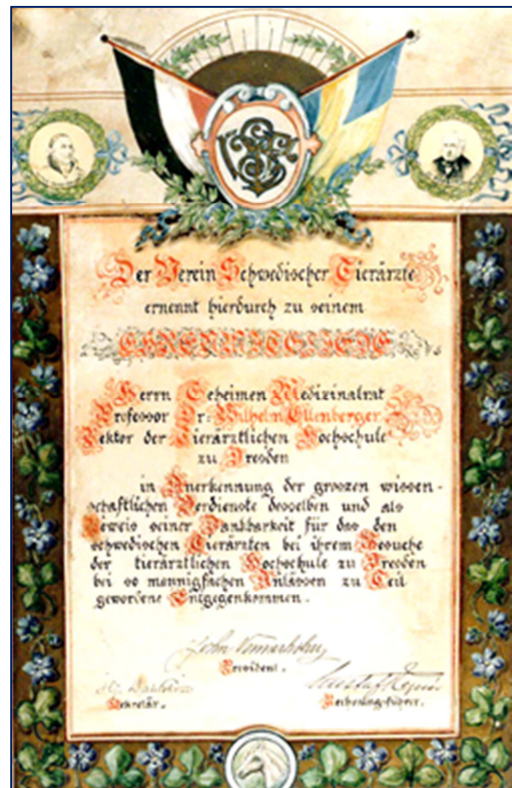 Der Verein Schwedischer Tierärzte
ernennt hierdurch zu seinem
EHRENMITGLIEDE
Herrn Geheimen Medizinalrat
Professor Dr. Wilhelm Ellenberger
Rektor der Tierärztlichen Hochschule
zu Dresden
in Anerkennung der grossen wissen-
schaftlichen Verdienste desselben und als
Beweis seiner Dankbarkeit für das den
schwedischen Tierärzten bei ihrem Besuche
der tierärztlichen Hochschule zu Dresden
bei so mannigfachen Anlässen zu Teil
gewordene Entgegenkommen.
John
Präsident.
Gustaf
Sekretär. Rechnungsführer.